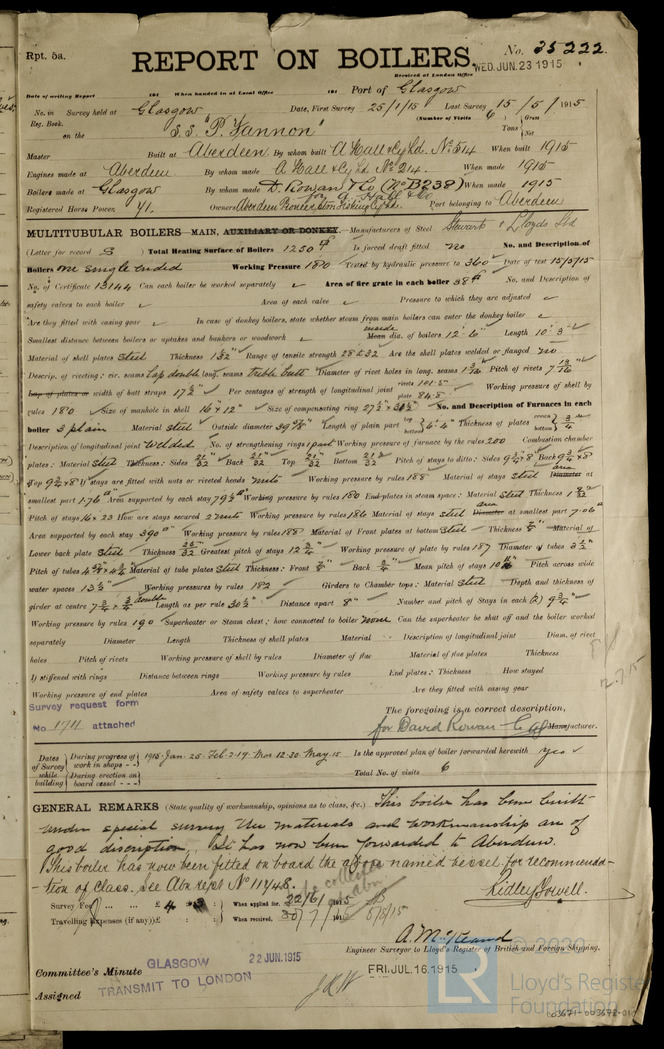 Rpt. 5a.
REPORT ON BOILERS.
No. 35222.
Received at London Office
WED. JUN. 23 1915
Date of writing Report 191 When handed in at Local Office 191 Port of Glasgow
No. in Survey held at Glasgow Date, First Survey 25/1/15 Last Survey 15/5/1915
Reg. Book. (Number of Visits 6
on the S.S. "P. Fannon" Tons Gross Net
Master Built at Aberdeen By whom built A Hall & Co Ld. No. 514 When built 1915
Engines made at Aberdeen By whom made A Hall & Co Ld. No 214. When made 1915
Boilers made at Glasgow By whom made D. Rowan & Co (No B238) When made 1915
for A. Hall & Co
Registered Horse Power 71. Owners Aberdeen Pioneer Fishing Co Ld. Port belonging to Aberdeen
MULTITUBULAR BOILERS MAIN, AUXILIARY OR DONKEY.— Manufacturers of Steel Stewarts & Lloyds Ltd
(Letter for record S) Total Heating Surface of Boilers 1250 Is forced draft fitted no No. and Description of
Boilers one single ended Working Pressure 180 Tested by hydraulic pressure to 360 Date of test 15/5/15
No. of Certificate 13144 Can each boiler be worked separately Area of fire grate in each boiler 38 No. and Description of
safety valves to each boiler Area of each valve Pressure to which they are adjusted
Are they fitted with easing gear In case of donkey boilers, state whether steam from main boilers can enter the donkey boiler
Smallest distance between boilers or uptakes and bunkers or woodwork inside Mean dia. of boilers 12'-6" Length 10'-3"
Material of shell plates Steel Thickness 1 3/32" Range of tensile strength 28 & 32 Are the shell plates welded or flanged no
Descrip. of riveting: cir. seams lap double long. seams treble butt Diameter of rivet holes in long. seams Pitch of rivets
Lap of plates or width of butt straps 17 1/2" Per centages of strength of longitudinal joint rivets 101.5 plate 84.8 Working pressure of shell by
rules 180 Size of manhole in shell 16" x 12" Size of compensating ring No. and Description of Furnaces in each
boiler 3 plain Material Steel Outside diameter 39 Length of plain part top bottom 6'-4" Thickness of plates crown bottom 3/4"
Description of longitudinal joint Welded No. of strengthening rings 1 part Working pressure of furnace by the rules 200 Combustion chamber
plates: Material steel Thickness: Sides 21/32" Back 21/32 Top 21/32 Bottom 21/32 Pitch of stays to ditto: Sides 9 3/4 x 8" Back 9 3/4 x 8"
Top 9 3/4 x 8" If stays are fitted with nuts or riveted heads nuts Working pressure by rules 188 Material of stays steel area Diameter at
smallest part 1.76 Area supported by each stay 79 1/2 Working pressure by rules 180 End plates in steam space: Material Steel Thickness
Pitch of stays 16 x 23 How are stays secured 2 nuts Working pressure by rules 186 Material of stays steel area Diameter at smallest part 7.06
Area supported by each stay 390 Working pressure by rules 188 Material of Front plates at bottom Steel Thickness Material of
Lower back plate Steel Thickness 25/32 Greatest pitch of stays 12 3/4" Working pressure of plate by rules 187 Diameter of tubes 3 1/2"
Pitch of tubes Material of tube plates Steel Thickness: Front Back 3/4" Mean pitch of stays Pitch across wide
water spaces 13 1/2" Working pressures by rules 182 Girders to Chamber tops: Material Steel Depth and thickness of
girder at centre double Length as per rule 30 1/2" Distance apart 8" Number and pitch of Stays in each (2) 9 3/4"
Working pressure by rules 190 Superheater or Steam chest; how connected to boiler None Can the superheater be shut off and the boiler worked
separately Diameter Length Thickness of shell plates Material Description of longitudinal joint Diam. of rivet
holes Pitch of rivets Working pressure of shell by rules Diameter of flue Material of flue plates Thickness
If stiffened with rings Distance between rings Working pressure by rules End plates: Thickness How stayed
Working pressure of end plates Area of safety valves to superheater Are they fitted with easing gear
Survey request form
No 1711 attached
2.7.15
The foregoing is a correct description,
for David Rowan & Co Manufacturer.
Dates of Survey while building
During progress of work in shops - - 1915 Jan. 25 Feb. 2. 19 Mar 12. 30 May. 15 Is the approved plan of boiler forwarded herewith Yes
During erection on board vessel - - - Total No. of visits 6
GENERAL REMARKS (State quality of workmanship, opinions as to class, &c.) This boiler has been built
under special survey the materials and workmanship are of
good discription, It has now been forwarded to Aberdeen.
This boiler has now been fitted on board the above named vessel for recommenda-
-tion of class. See Abn rept No 11748.
Ridley Howell.
Survey Fee ... ... £ 4 When applied for, 22/6/1915
Travelling Expenses (if any) £ : : When received, 191
A. McKeand
Engineer Surveyor to Lloyd's Register of British and Foreign Shipping.
Committee's Minute GLASGOW 22 JUN. 1915
FRI. JUL. 16 1915
TRANSMIT TO LONDON
Assigned
© 2020
LR
Lloyd's Register
Foundation
003671-003678-010